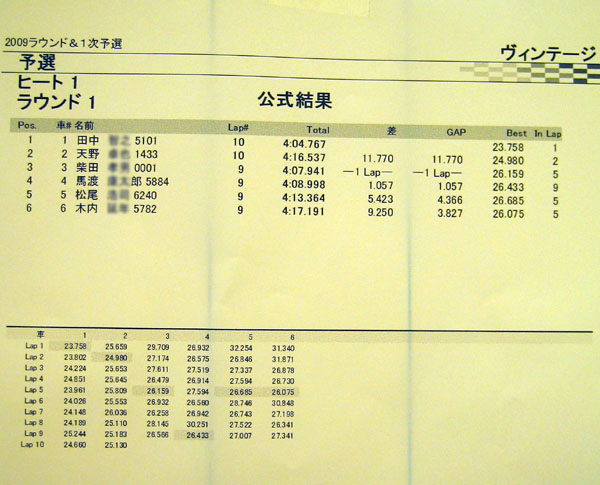 2009ラウンド&1次予選
ヴィンテージ
予選
ヒート 1
ラウンド 1
公式結果
Pos. 車# 名前 Lap# Total 差 GAP Best In Lap
1 1 田中 5101 10 4:04.767 23.758 1
2 2 天野 1433 10 4:16.537 11.770 11.770 24.980 2
3 3 柴田 0001 9 4:07.941 —1 Lap— —1 Lap— 26.159 5
4 4 馬渡 郎 5884 9 4:08.998 1.057 1.057 26.433 9
5 5 松尾 6240 9 4:13.364 5.423 4.366 26.685 5
6 6 木内 5782 9 4:17.191 9.250 3.827 26.075 5
車 1 2 3 4 5 6
Lap 1 23.758 25.659 29.709 26.932 32.254 31.340
Lap 2 23.802 24.980 27.174 26.575 26.846 31.871
Lap 3 24.224 25.653 27.611 27.519 27.337 26.878
Lap 4 24.851 25.645 26.479 26.914 27.594 26.730
Lap 5 23.961 25.809 26.159 27.594 26.685 26.075
Lap 6 24.026 25.553 26.932 26.560 28.746 30.848
Lap 7 24.148 26.036 26.258 26.942 26.743 27.198
Lap 8 24.189 25.110 28.145 30.251 27.522 26.341
Lap 9 25.244 25.183 26.566 26.433 27.007 27.341
Lap 10 24.660 25.130